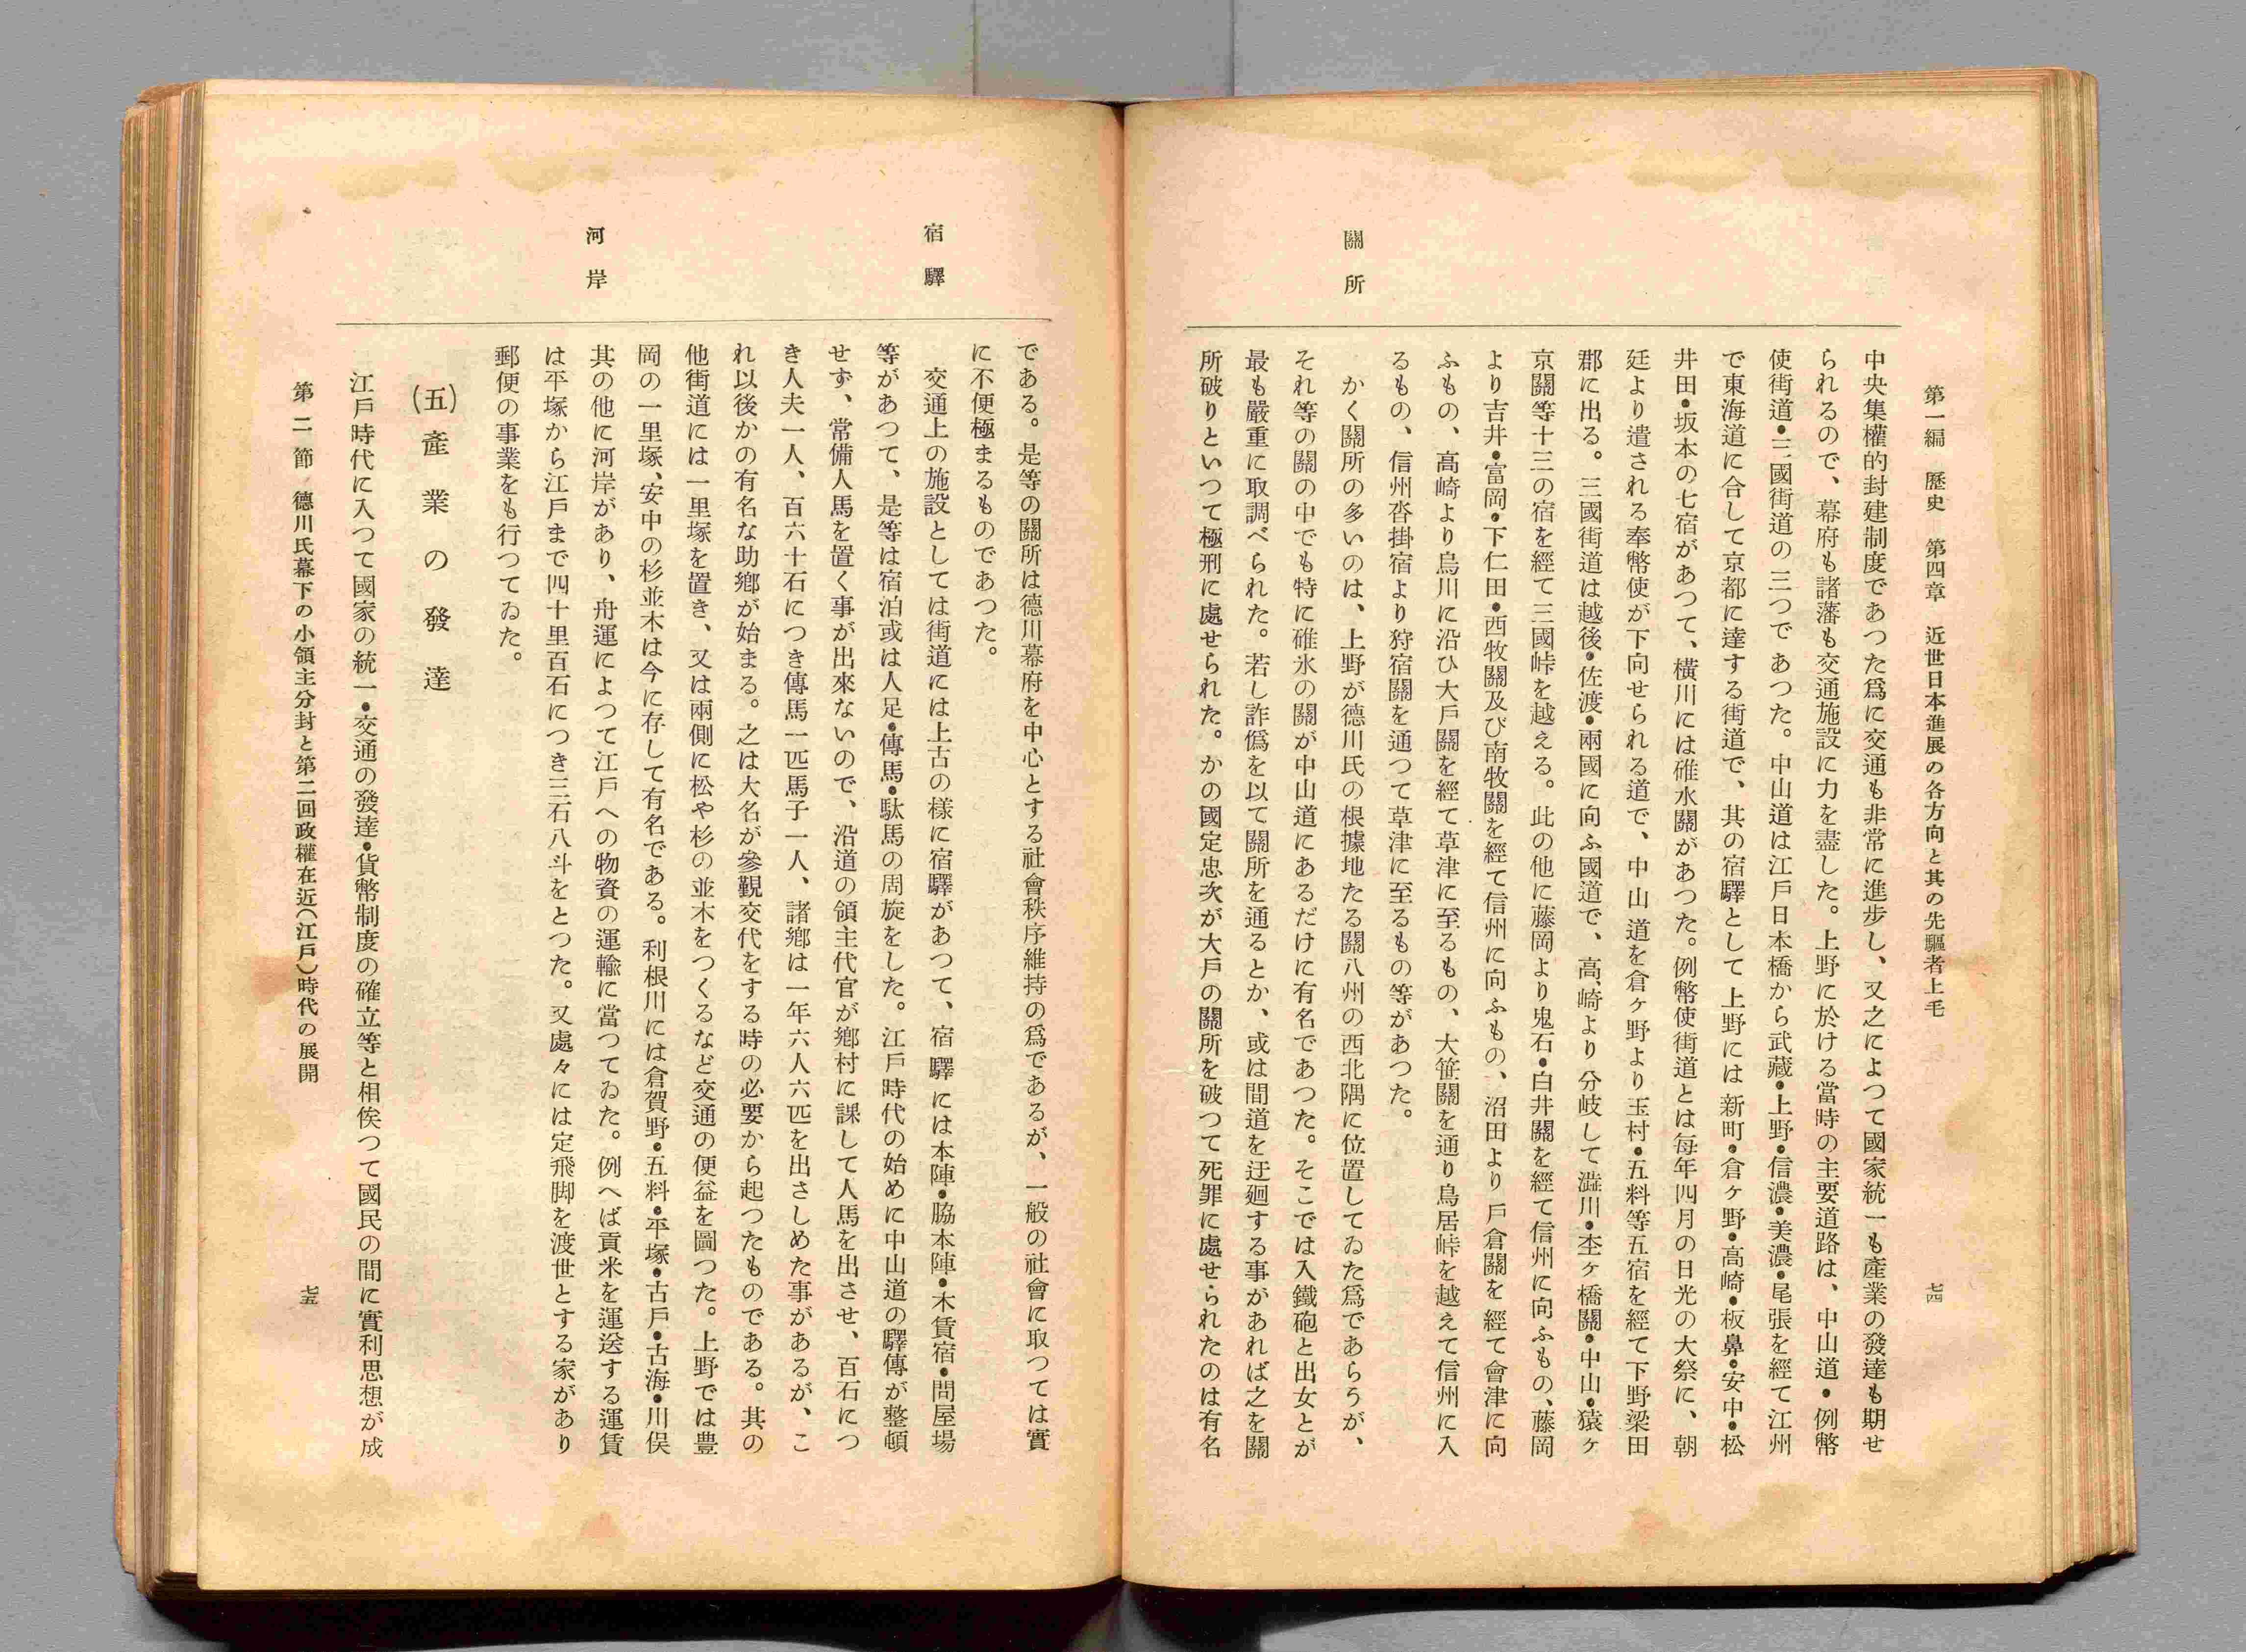 第一編　歷史　第四章　近世日本進展の各方向と其の先驅者上毛
七四
關所
中央集權的封建制度であつた爲に交通も非常に進步し、又之によつて國家統一も產業の發達も期せ
られるので、幕府も諸藩も交通施設に力を盡した。上野に於ける當時の主要道路は、中山道・例幣
使街道・三國街道の三つであつた。中山道は江戶日本橋から武藏・上野・信濃・美濃・尾張を經て江州
で東海道に合して京都に達する街道で、其の宿驛として上野には新町・倉ヶ野・高崎・板鼻・安中・松
井田・坂本の七宿があつて、橫川には碓氷關があつた。例幣使街道とは每年四月の日光の大祭に、朝
廷より遣される奉幣使が下向せられる道で、中山道を倉ヶ野より玉村・五料等五宿を經て下野梁田
郡に出る。三國街道は越後・佐渡・兩國に向ふ國道で、高崎より分岐して澁川・杢ヶ橋關・中山・猿ヶ
京關等十三の宿を經て三國峠を越える。此の他に藤岡より鬼石・白井關を經て信州に向ふもの、藤岡
より吉井・富岡・下仁田・西牧關及び南牧關を經て信州に向ふもの、沼田より戶倉關を經て會津に向
ふもの、高崎より烏川に沿ひ大戶關を經て草津に至るもの、大笹關を通り鳥居峠を越えて信州に入
るもの、信州沓掛宿より狩宿關を通つて草津に至るもの等があつた。
かく關所の多いのは、上野が德川氏の根據地たる關八州の西北隅に位置してゐた爲であらうが、
それ等の關の中でも特に碓氷の關が中山道にあるだけに有名であつた。そこでは入鐵砲と出女とが
最も嚴重に取調べられた。若し詐僞を以て關所を通るとか、或は間道を迂廻する事があれば之を關
所破りといつて極刑に處せられた。かの國定忠次が大戶の關所を破つて死罪に處せられたのは有名
宿驛
河岸
である。是等の關所は德川幕府を中心とする社會秩序維持の爲であるが、一般の社會に取つては實
に不便極まるものであつた。
交通上の施設としては街道には上古の樣に宿驛があつて、宿驛には本陣・脇本陣・木賃宿・問屋場
等があつて、是等は宿泊或は人足・傳馬・駄馬の周旋をした。江戶時代の始めに中山道の驛傳が整頓
せず、常備人馬を置く事が出來ないので、沿道の領主代官が鄕村に課して人馬を出させ、百石につ
き人夫一人、百六十石につき傳馬一匹馬子一人、諸鄕は一年六人六匹を出さしめた事があるが、こ
れ以後かの有名な助鄕が始まる。之は大名が參覲交代をする時の必要から起つたものである。其の
他街道には一里塚を置き、又は兩側に松や杉の並木をつくるなど交通の便益を圖つた。上野では豊
岡の一里塚、安中の杉並木は今に存して有名である。利根川には倉賀野・五料・平塚・古戶・古海・川俣
其の他に河岸があり、舟運によつて江戶への物資の運輸に當つてゐた。例へば貢米を運送する運賃
は平塚から江戶まで四十里百石につき三石八斗をとつた。又處々には定飛脚を渡世とする家があり
郵便の事業をも行つてゐた。
(五)產業の發達
江戶時代に入つて國家の統一・交通の發達・貨幣制度の確立等と相俟つて國民の間に實利思想が成
第二節　德川氏幕下の小領主分封と第二回政權在近(江戶)時代の展開
七五